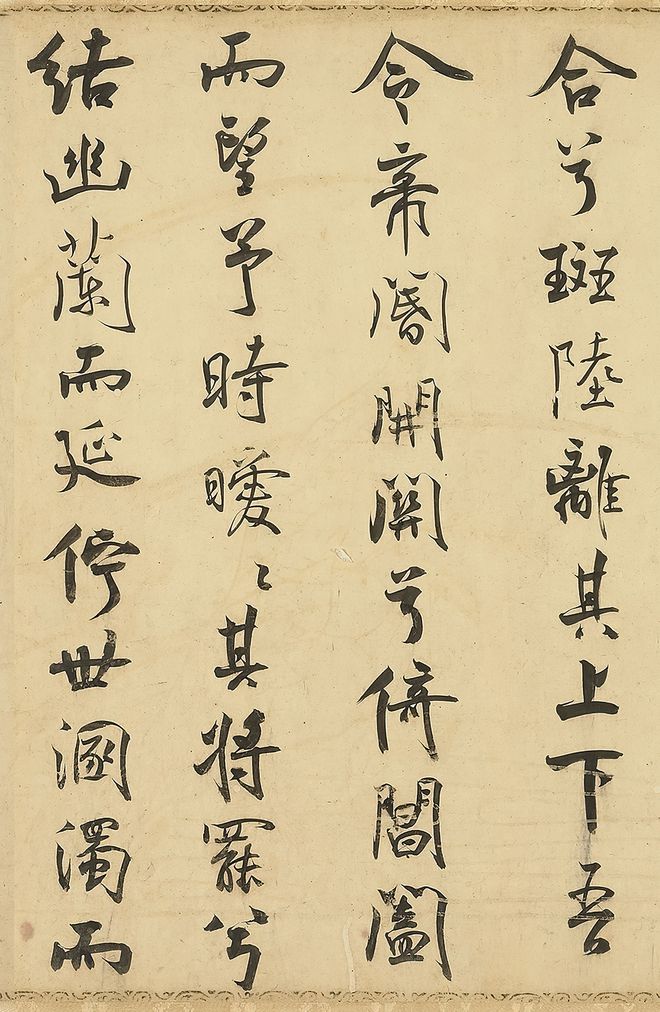 合兮斑陸離其上下吾
令帝閽開關兮倚閶闔
而望予時曖〻其將罷兮
結幽蘭而延佇世溷濁而